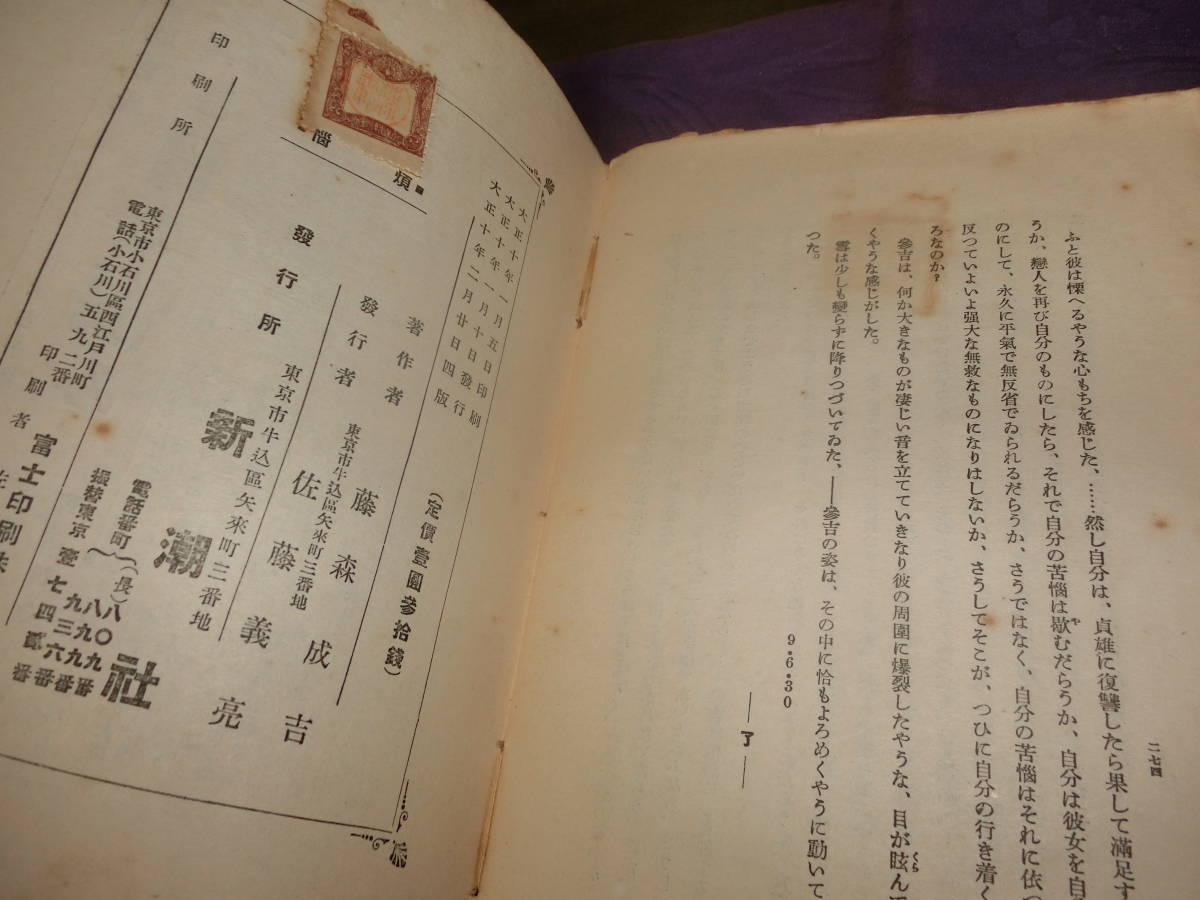 二七四
ふと彼は慄へるやうな心もちを感じた、……然し自分は、貞雄に復讐したら果して滿足す
うか、戀人を再び自分のものにしたら、それで自分の苦惱は歇むだらうか、自分は彼女を自
のにして、永久に平氣で無反省でゐられるだらうか、さうではなく、自分の苦惱はそれに依つ
反つていよいよ强大な無救なものになりはしないか、さうしてそこが、つひに自分の行き着く
ろなのか？
參吉は、何か大きなものが凄じい音を立てていきなり彼の周圍に爆裂したやうな、目が眩ん
くやうな感じがした。
雪は少しも變らずに降りつづいてゐた、——參吉の姿は、その中に恰もよろめくやうに動いて
つた。
9・6・30
——了——
大正十年一月五日印刷
大正十年一月十日發行
大正十年二月廿日四版
煩惱
(定價壹圓參拾錢)
著作者 藤森成吉
東京市牛込區矢來町三番地
發行者 佐藤義亮
東京市牛込區矢來町三番地
發行所 新潮社
電話番町(長)
八〇九番
八九九番
九三六番
振替東京壹七四貳番
東京市小石川區西江戶川町
電話(小石川)五九二番
印刷所
印刷者
富士印刷株